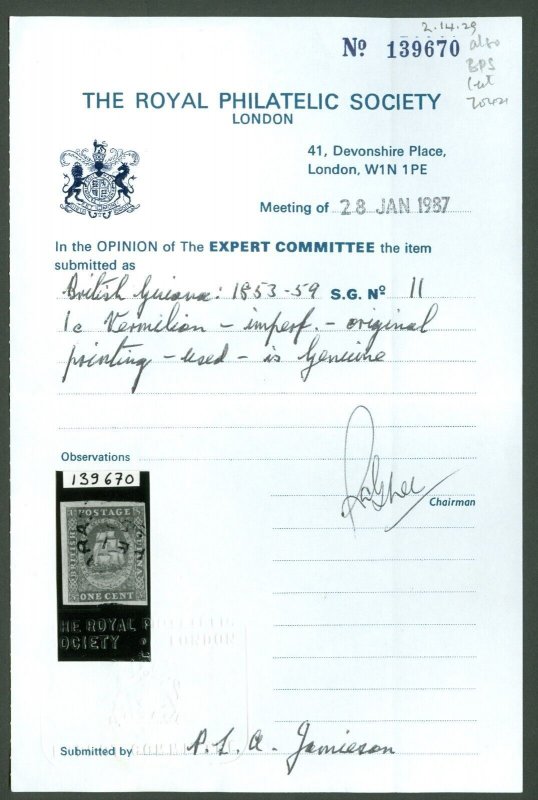 2.14.29
Nº 139670
also
BPS
THE ROYAL PHILATELIC SOCIETY
LONDON
41, Devonshire Place,
London, W1N 1PE
Meeting of 28 JAN 1987
In the OPINION of The EXPERT COMMITTEE the item
submitted as
British Guiana: 1853-59 S.G. Nº 11
1c Vermilion - imperf. - original
printing - used - is Genuine
Observations
139670
Chairman
POSTAGE
BRITISH
GUIANA
ONE CENT
THE ROYAL P
SOCIETY
LONDON
Submitted by P. L. A. Jamieson